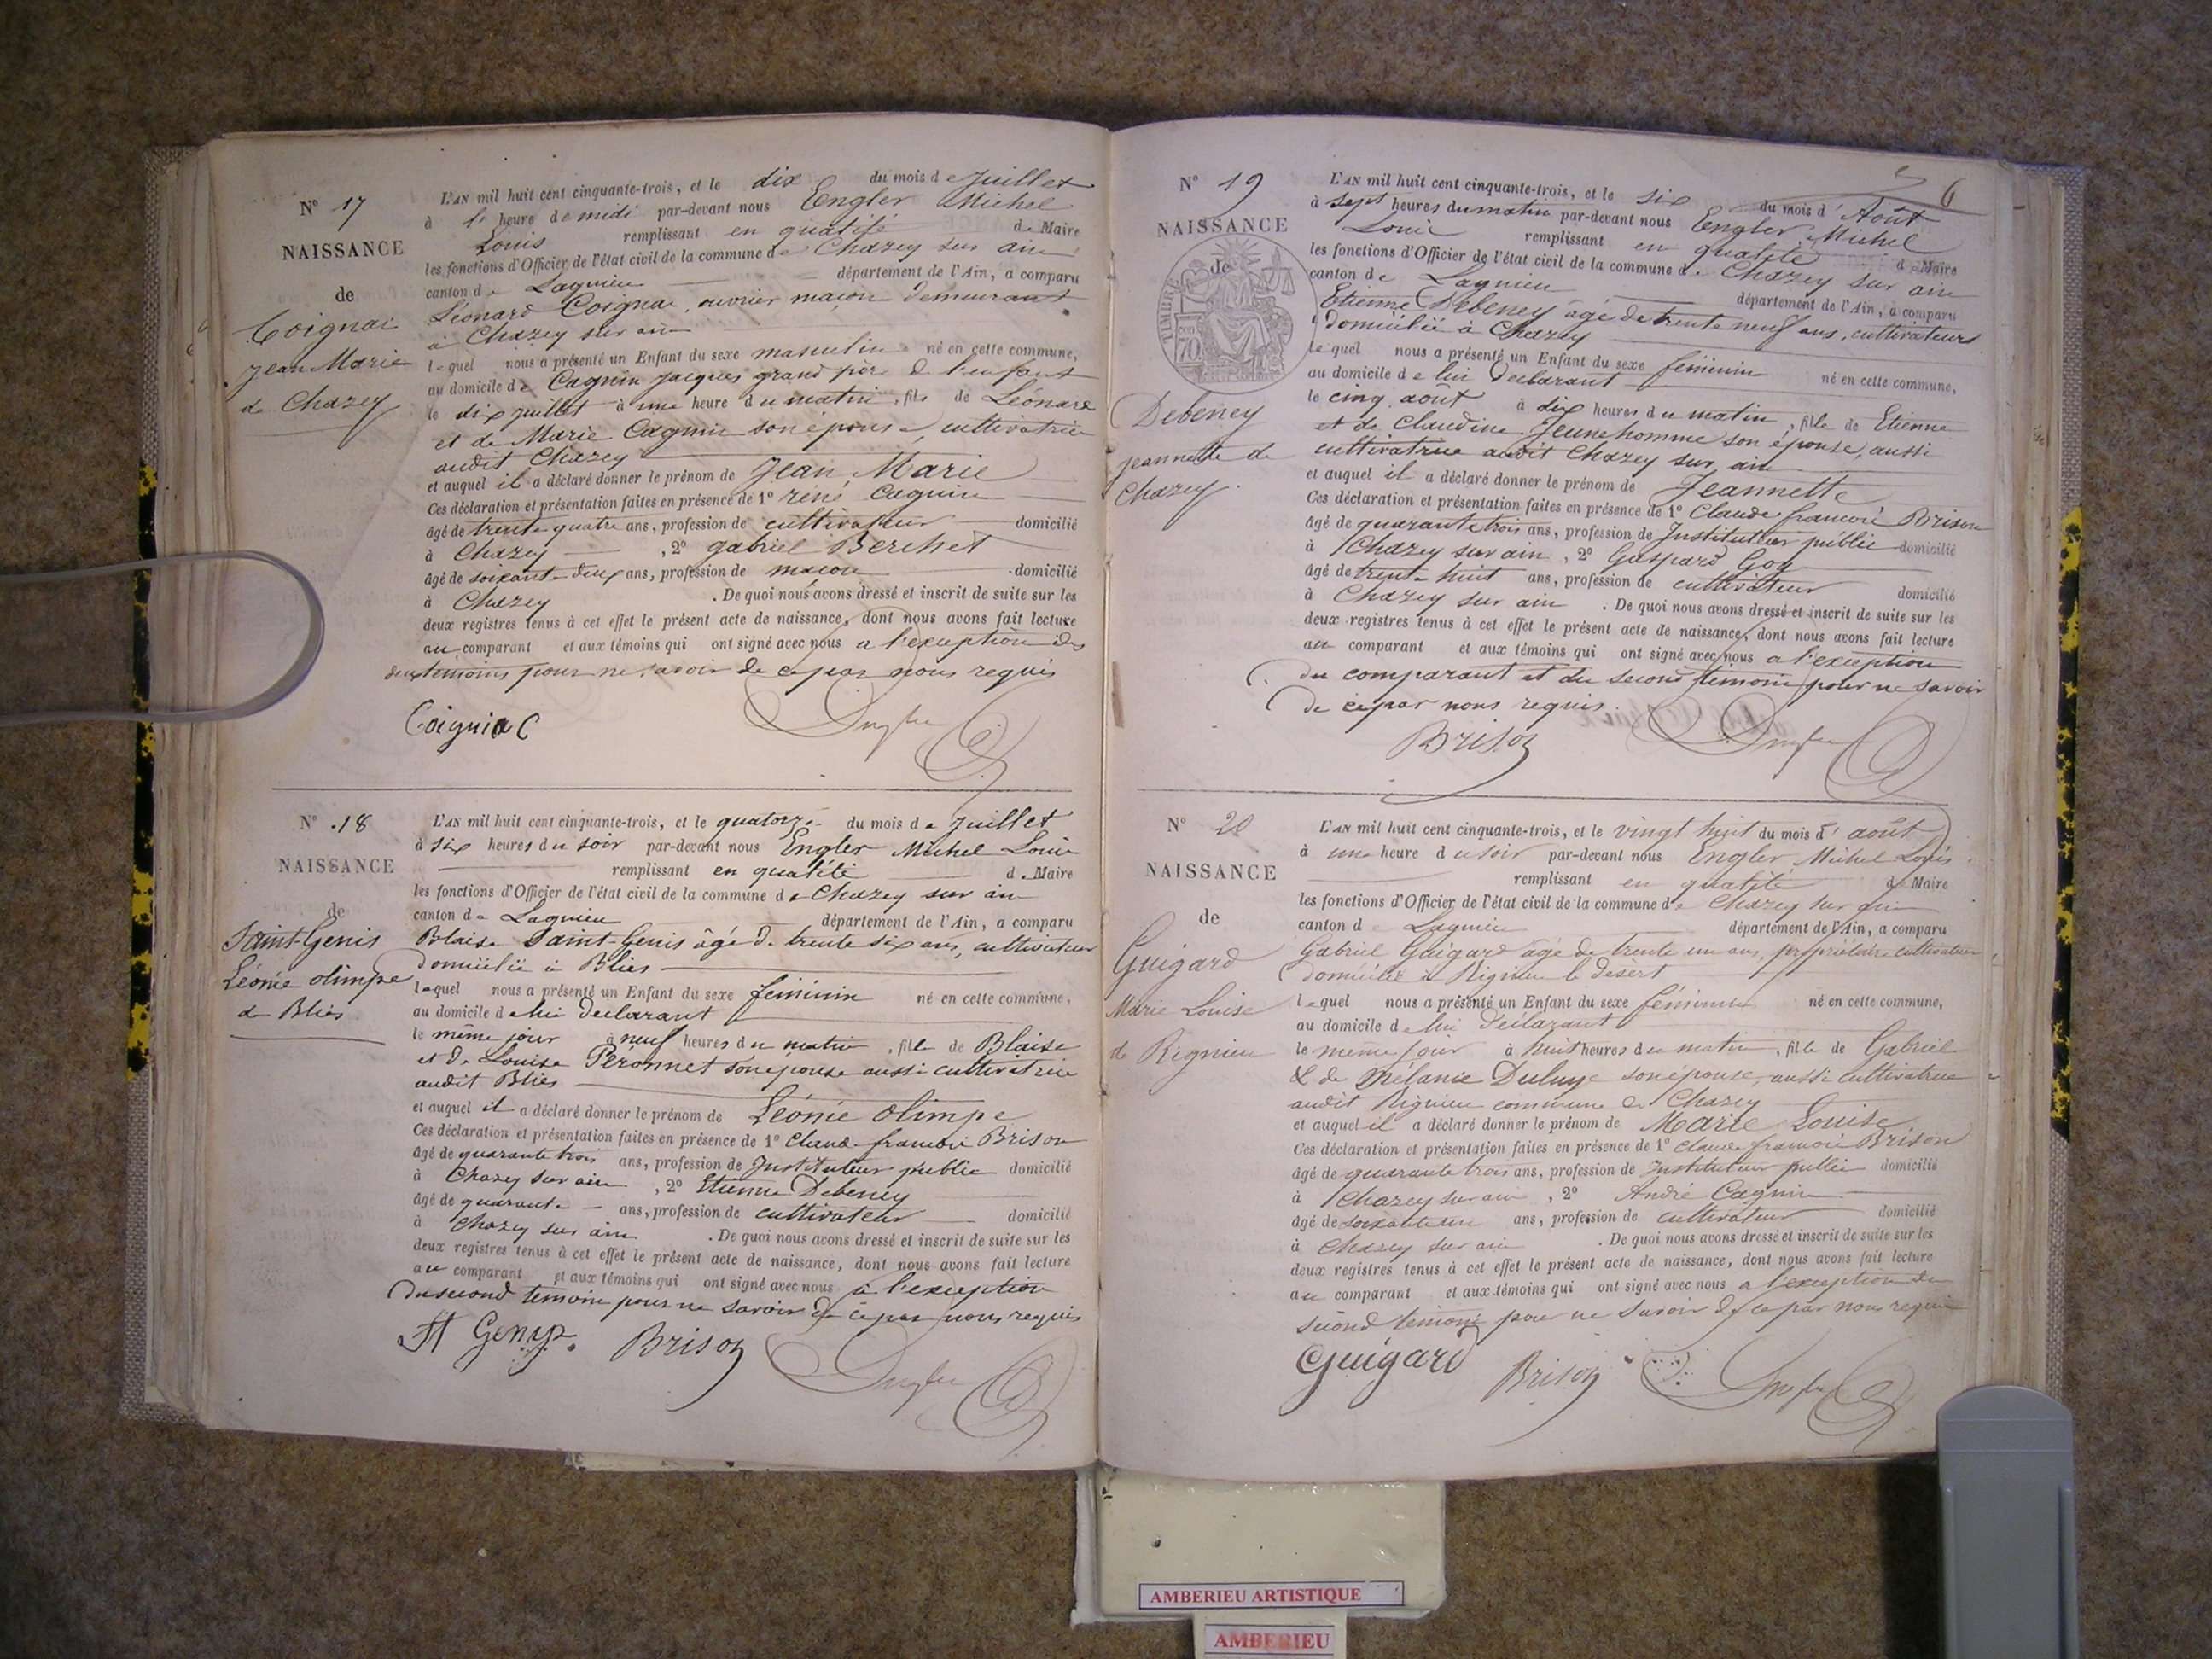 N° 17
NAISSANCE
de
Coignac
Jean Marie
de Chazey
L'AN mil huit cent cinquante-trois, et le dix du mois de Juillet
à 1e heure de midi par-devant nous Engler Michel
Louis remplissant en qualité de Maire
les fonctions d'Officier de l'état civil de la commune de Chazey sur ain
canton de Lagnieu département de l'Ain, a comparu
Léonard Coignac, ouvrier maçon demeurant
à Chazey sur ain
lequel nous a présenté un Enfant du sexe masculin né en cette commune,
au domicile de Cagnin Jacques grand père de l'enfant
le dix juillet à une heure du matin, fils de Léonard
et de Marie Cagnin son épouse, cultivatrice
audit Chazey
et auquel il a déclaré donner le prénom de Jean Marie
Ces déclaration et présentation faites en présence de 1° réné Cagnin
âgé de trente quatre ans, profession de cultivateur domicilié
à Chazey, 2° gabriel Berchet
âgé de soixante deux ans, profession de maçon domicilié
à Chazey. De quoi nous avons dressé et inscrit de suite sur les
deux registres tenus à cet effet le présent acte de naissance, dont nous avons fait lecture
au comparant et aux témoins qui ont signé avec nous a l'exception des
deux témoins pour ne savoir de ce par nous requis
Coigniac Engler
N° 18
NAISSANCE
de
Saint-Genis
Léonie olimpe
de Blies
L'AN mil huit cent cinquante-trois, et le quatorze du mois de Juillet
à six heures du soir par-devant nous Engler Michel Louis
remplissant en qualité de Maire
les fonctions d'Officier de l'état civil de la commune de Chazey sur ain
canton de Lagnieu département de l'Ain, a comparu
Blaise Saint-Genis âgé de trente six ans, cultivateur
domicilié à Blies
lequel nous a présenté un Enfant du sexe féminin né en cette commune,
au domicile de lui déclarant
le même jour à neuf heures du matin, fille de Blaise
et de Louise Péronnet son épouse aussi cultivatrice
audit Blies
et auquel il a déclaré donner le prénom de Léonie olimpe
Ces déclaration et présentation faites en présence de 1° Claude francois Brison
âgé de quarante trois ans, profession de Instituteur public domicilié
à Chazey sur ain, 2° Etienne Debeney
âgé de quarante ans, profession de cultivateur domicilié
à Chazey sur ain. De quoi nous avons dressé et inscrit de suite sur les
deux registres tenus à cet effet le présent acte de naissance, dont nous avons fait lecture
au comparant et aux témoins qui ont signé avec nous a l'exception
du second témoin pour ne savoir de ce par nous requis
St Genis Brison Engler
6
N° 19
NAISSANCE
de
TIMBRE
70
Debeney
Jeannette de
Chazey.
L'AN mil huit cent cinquante-trois, et le six du mois d'Août
à sept heures du matin par-devant nous Engler Michel
Louis remplissant en qualité de Maire
les fonctions d'Officier de l'état civil de la commune de Chazey sur ain
canton de Lagnieu département de l'Ain, a comparu
Etienne Debeney âgé de trente neuf ans, cultivateurs
domicilié à Chazey
lequel nous a présenté un Enfant du sexe féminin né en cette commune,
au domicile de lui déclarant
le cinq août à dix heures du matin, fille de Etienne
et de Claudine Jeunehomme son épouse, aussi
cultivatrice audit Chazey sur ain
et auquel il a déclaré donner le prénom de Jeannette
Ces déclaration et présentation faites en présence de 1° Claude francois Brison
âgé de quarante trois ans, profession de Instituteur public domicilié
à Chazey sur ain, 2° Gaspard Goy
âgé de trente huit ans, profession de cultivateur domicilié
à Chazey sur ain. De quoi nous avons dressé et inscrit de suite sur les
deux registres tenus à cet effet le présent acte de naissance, dont nous avons fait lecture
au comparant et aux témoins qui ont signé avec nous a l'exception
du comparant et du second témoin pour ne savoir
de ce par nous requis.
Brison Engler
N° 20
NAISSANCE
de
Guigard
Marie Louise
de Rignieu
L'AN mil huit cent cinquante-trois, et le vingt huit du mois d'août
à une heure du soir par-devant nous Engler Michel Louis
remplissant en qualité de Maire
les fonctions d'Officier de l'état civil de la commune de Chazey sur ain
canton d Lagnieu département de l'Ain, a comparu
Gabriel Guigard âgé de trente un ans, propriétaire cultivateur
domicilié à Rignieu le désert
lequel nous a présenté un Enfant du sexe féminin né en cette commune,
au domicile de lui déclarant
le même jour à huit heures du matin, fille de Gabriel
& de Mélanie son épouse, aussi cultivatrice
audit Rignieu commune de Chazey
et auquel il a déclaré donner le prénom de Marie Louise
Ces déclaration et présentation faites en présence de 1° Claude francois Brison
âgé de quarante trois ans, profession de Instituteur public domicilié
à Chazey sur ain, 2° André Cagnin
âgé de soixante un ans, profession de cultivateur domicilié
à Chazey sur ain. De quoi nous avons dressé et inscrit de suite sur les
deux registres tenus à cet effet le présent acte de naissance, dont nous avons fait lecture
au comparant et aux témoins qui ont signé avec nous a l'exception du
second témoin pour ne savoir de ce par nous requis
Guigard Brison Engler
AMBERIEU ARTISTIQUE
AMBERIEU